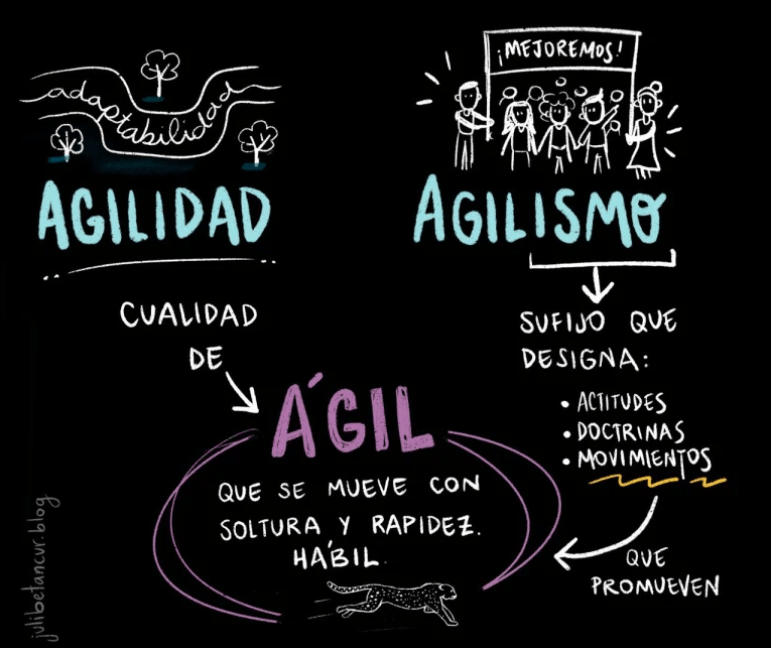 adaptabilidad
AGILIDAD
CUALIDAD
DE
¡MEJOREMOS!
AGILISMO
SUFIJO QUE
DESIGNA:
• ACTITUDES
• DOCTRINAS
• MOVIMIENTOS
QUE
PROMUEVEN
ÁGIL
QUE SE MUEVE CON
SOLTURA Y RAPIDEZ.
HÁBIL
julibetancur.blog